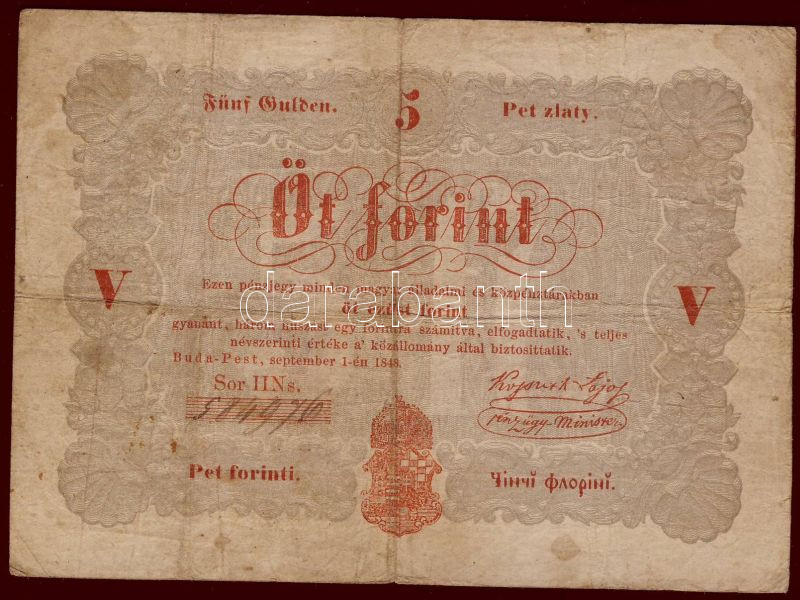 Fünf Gulden. 5 Pet zlaty.
Öt forint
V V
Ezen pénzjegy minden magyar álladalmi és közpénztárakban
öt ezüst forint
gyanánt, három huszast egy forintra számítva, elfogadtatik, 's teljes
névszerinti értéke a' közállomány által biztosittatik.
Buda-Pest, september 1-én 1848.
Sor IINs.
Kossuth Lajos
pénzügy-Minister
Pet forinti.
Чінчĭ флорінĭ.
darabanth